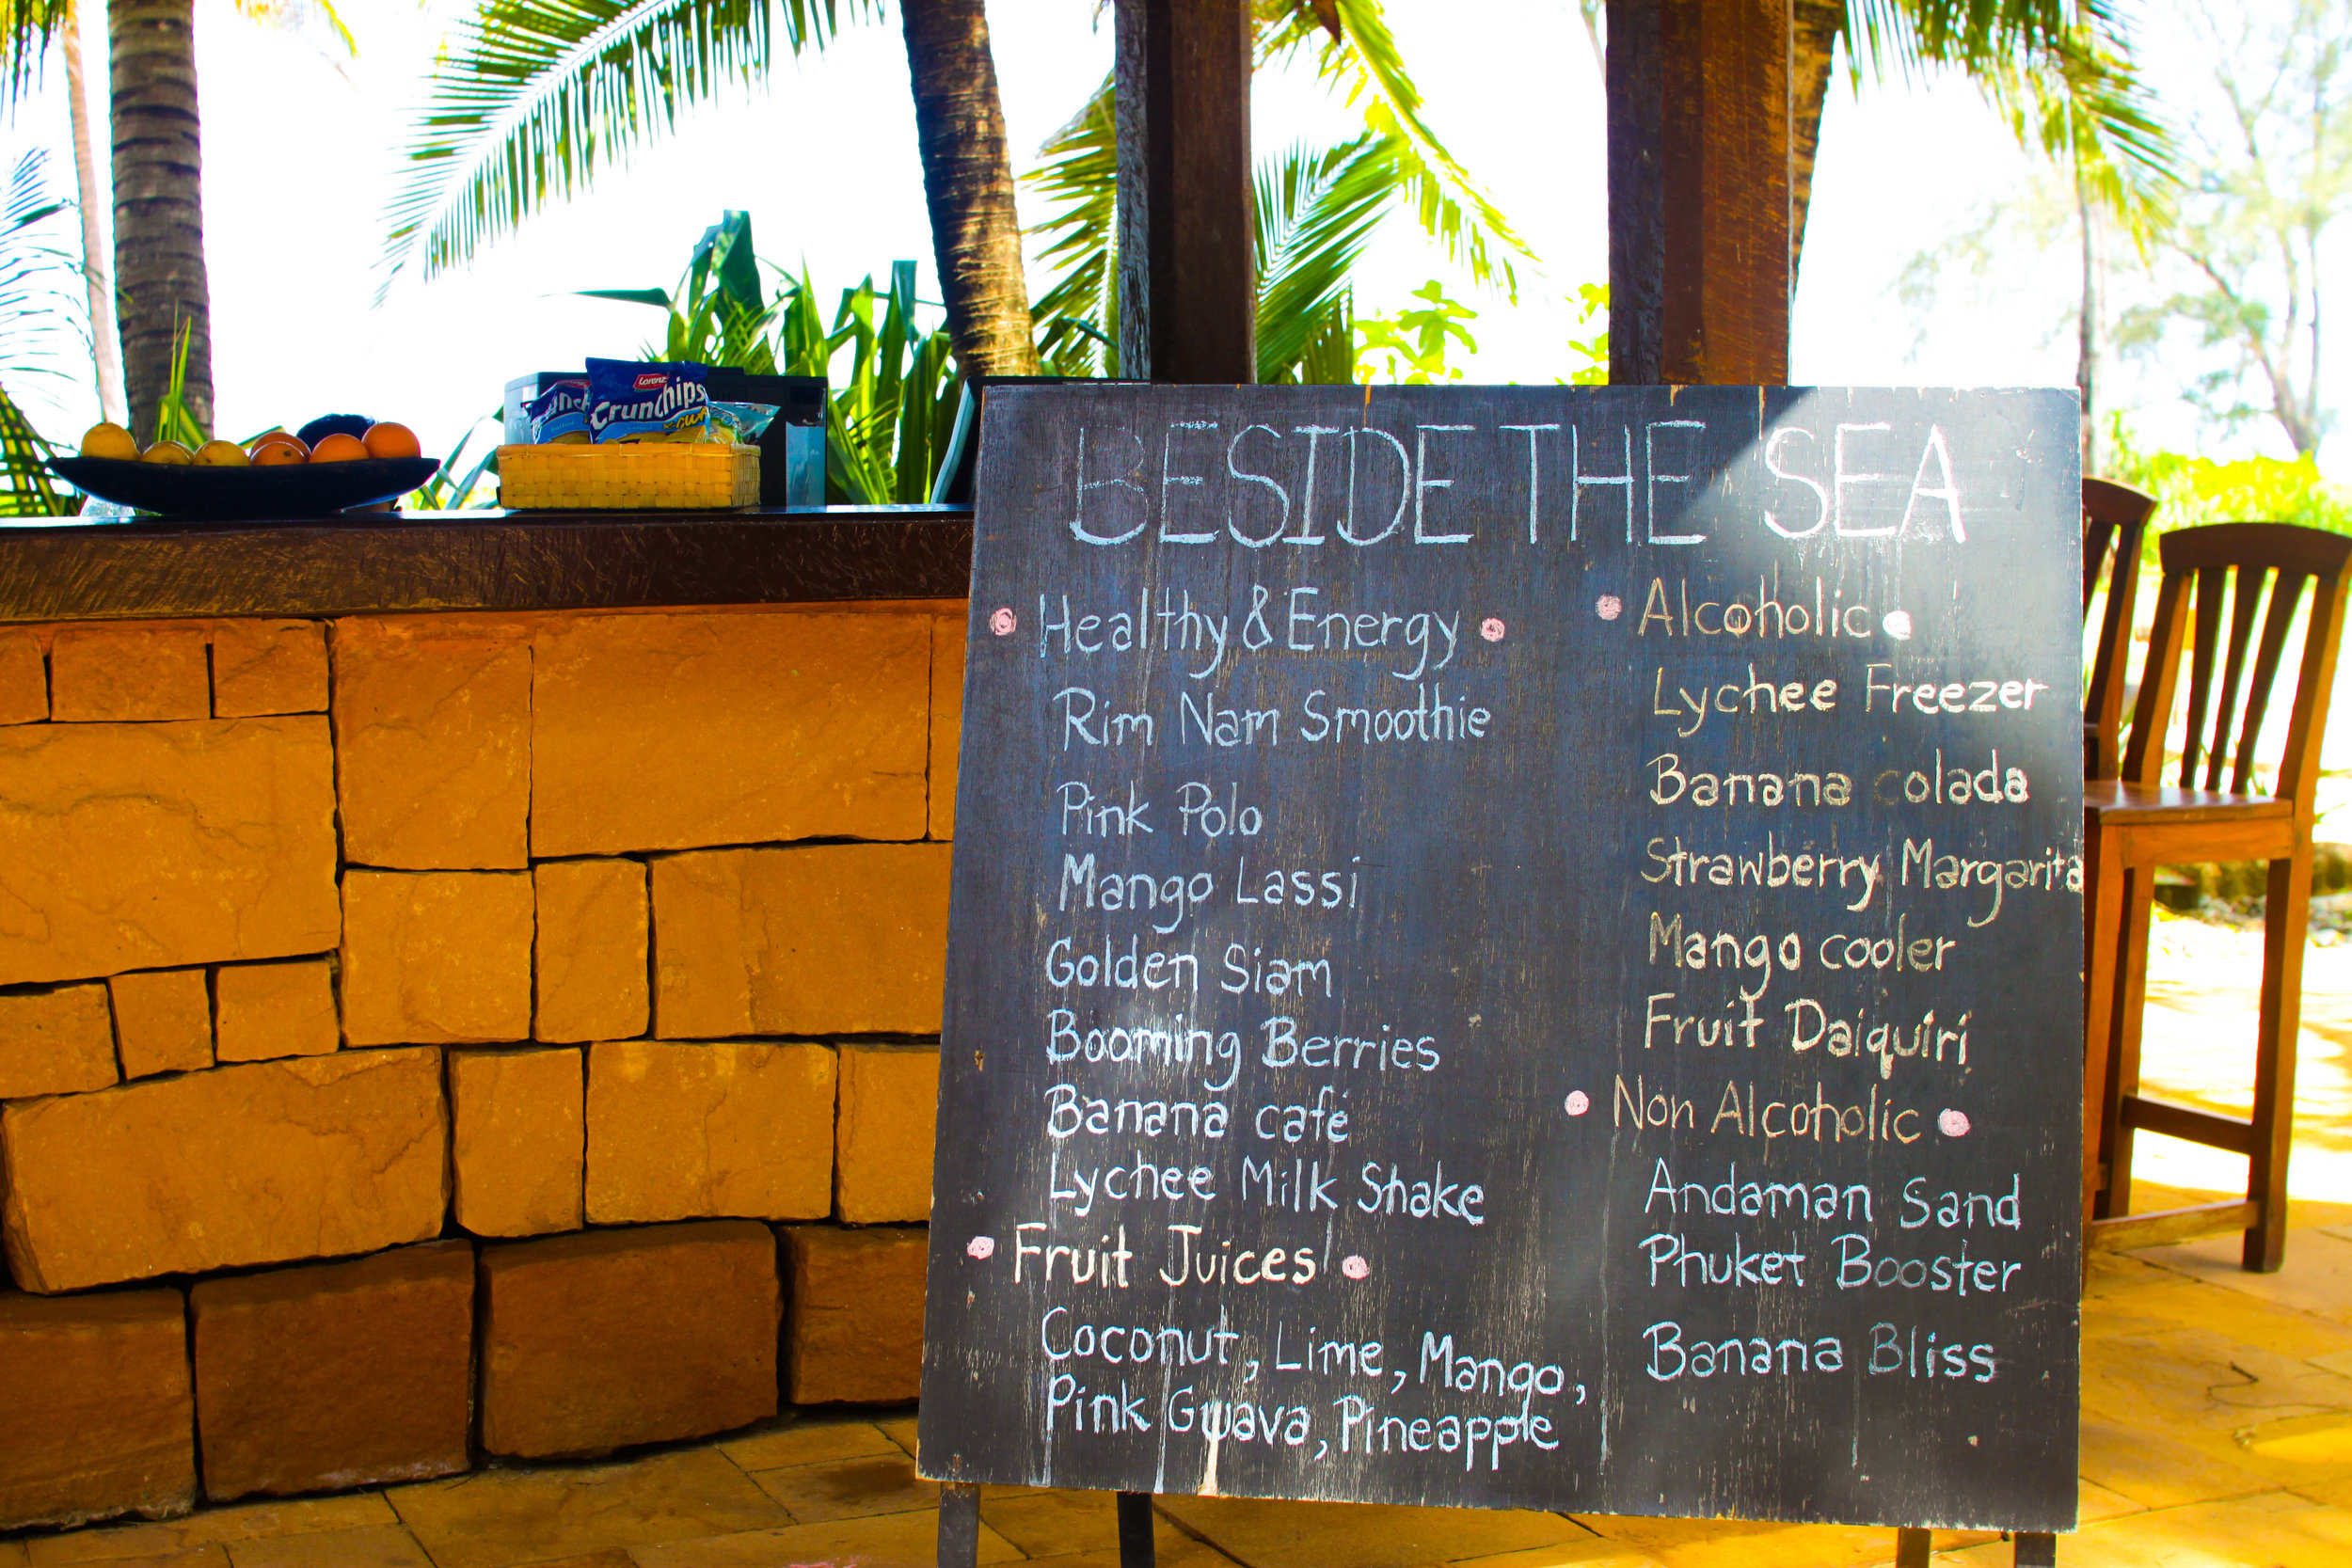 Lorenz
Crunchips
BESIDE THE SEA
Healthy & Energy
Rim Nam Smoothie
Pink Polo
Mango Lassi
Golden Siam
Booming Berries
Banana café
Lychee Milk Shake
Fruit Juices
Coconut, Lime, Mango,
Pink Guava, Pineapple
Alcoholic
Lychee Freezer
Banana colada
Strawberry Margarita
Mango cooler
Fruit Daiquiri
Non Alcoholic
Andaman Sand
Phuket Booster
Banana Bliss